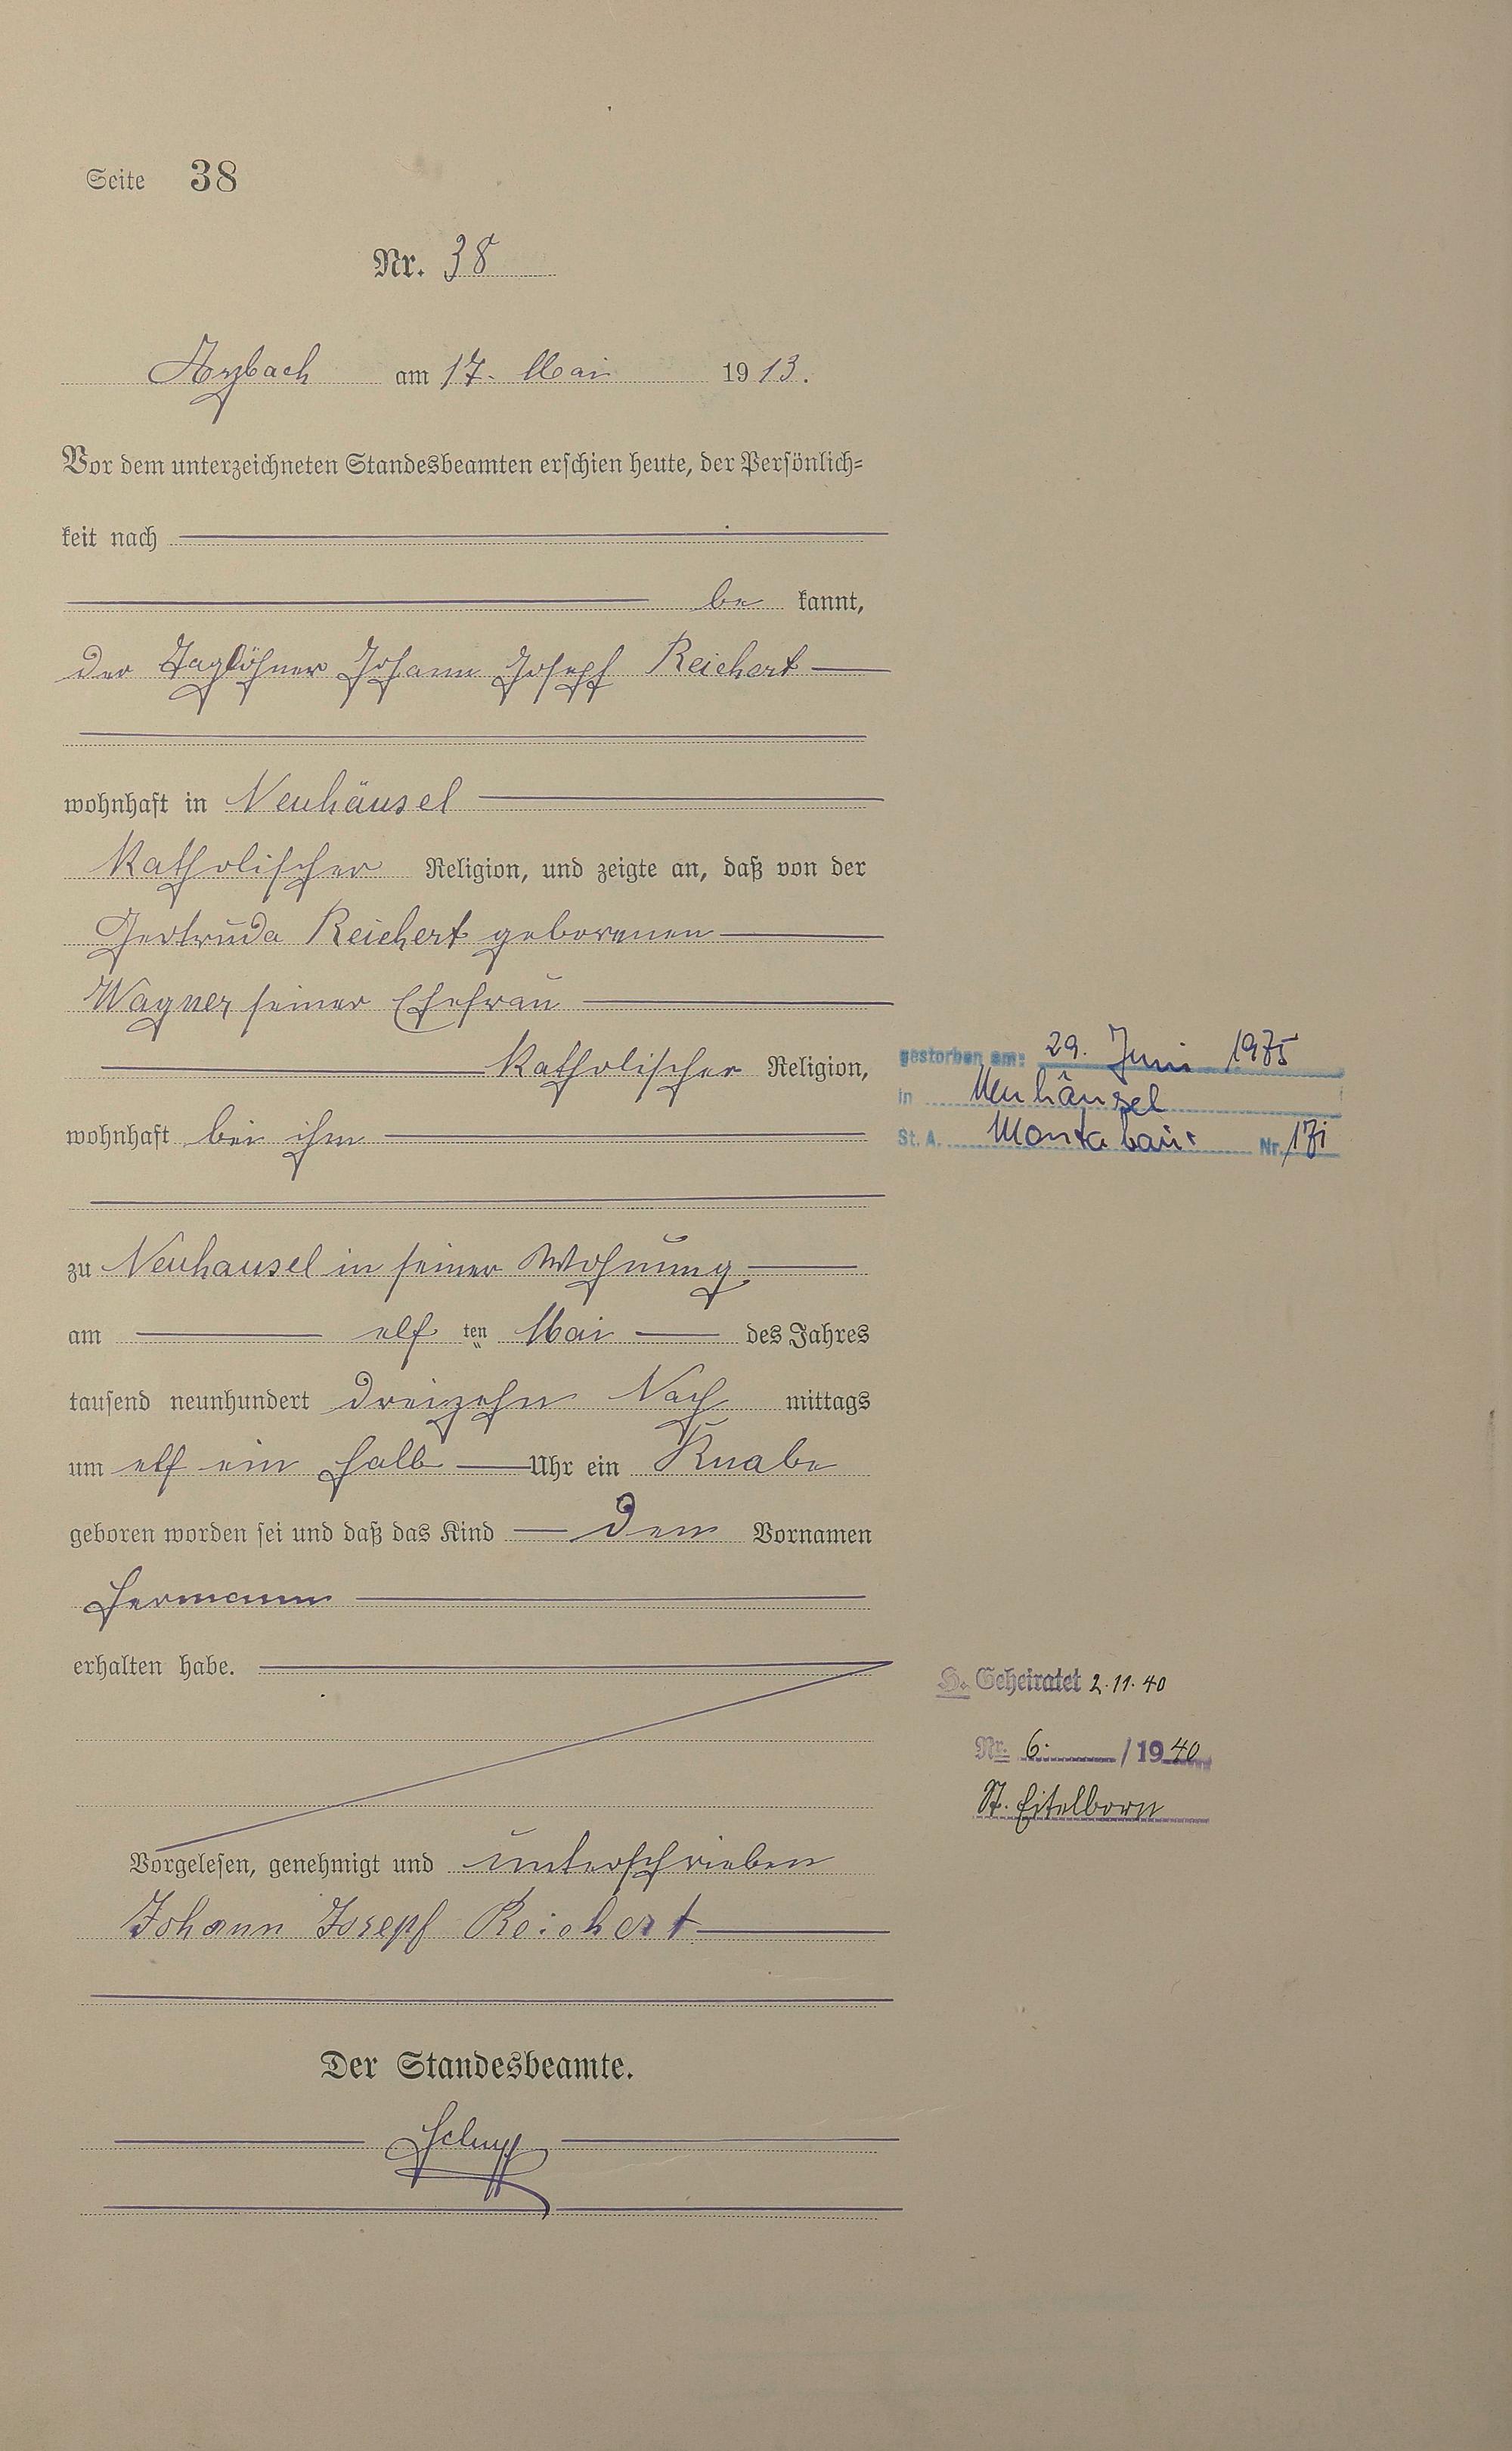 Seite 38
Nr. 38
Arzbach am 17. Mai 1913.
Vor dem unterzeichneten Standesbeamten erschien heute, der Persönlich=
keit nach
be kannt,
der Taglöhner Johann Josepf Reichert
wohnhaft in Neuhäusel
katholischer Religion, und zeigte an, daß von der
Gertruda Reichert geborenen
Wagner, seiner Ehefrau
katholischer Religion,
wohnhaft bei ihm
zu Neuhausel in seiner Wohnung
am elf ten Mai des Jahres
tausend neunhundert dreizehn Nach mittags
um elf ein halb Uhr ein Knabe
geboren worden sei und daß das Kind den Vornamen
Hermann
erhalten habe.
Vorgelesen, genehmigt und unterschrieben
Johann Josepf Reichert
Der Standesbeamte.
gestorben am: 29. Juni 1975
in Neuhäusel
St. A. Montabaur Nr.
H. Geheiratet 2.11.40
Nr. 6. / 1940
St. Eitelborn